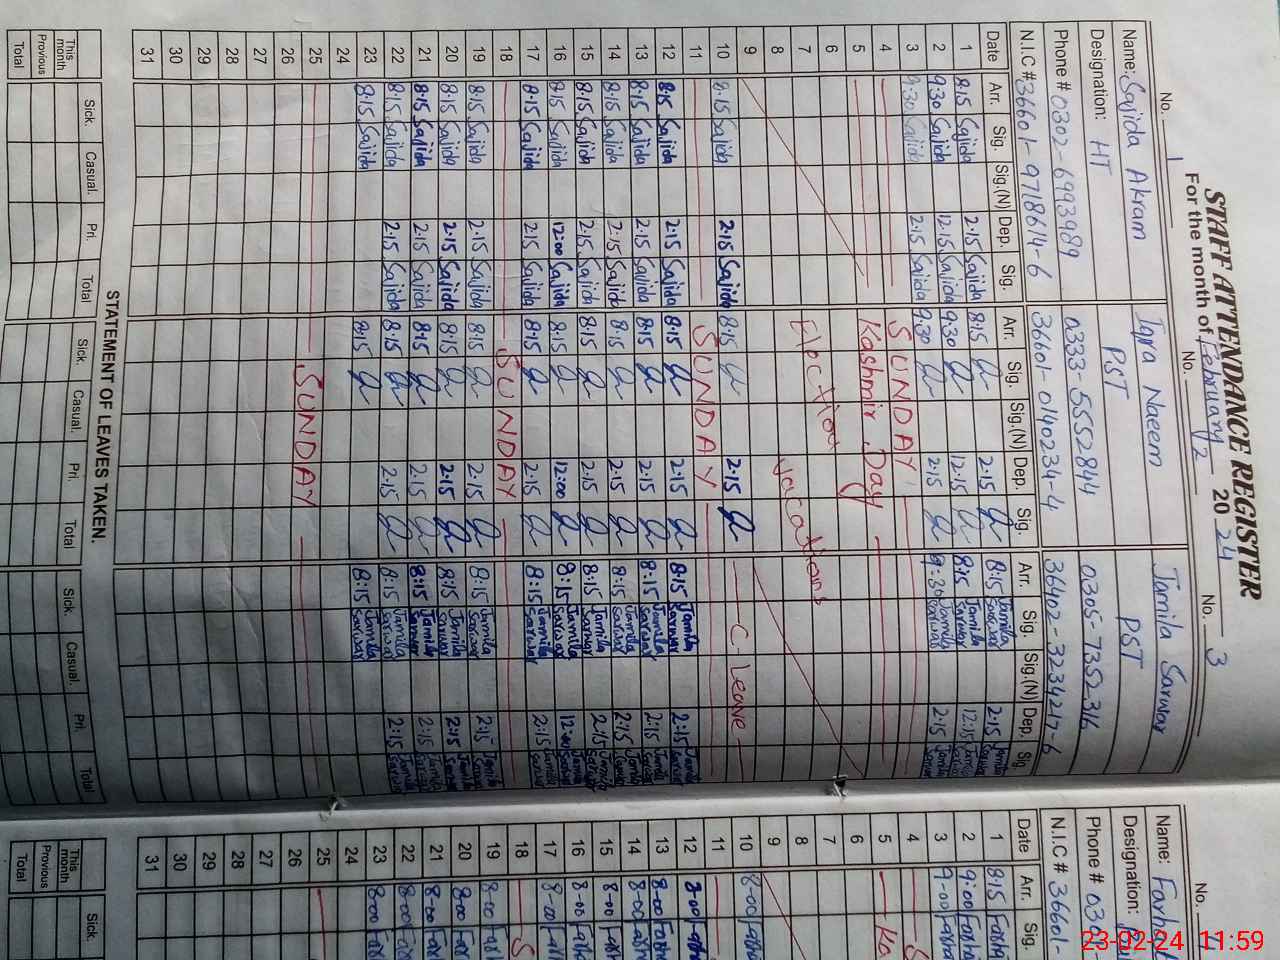 STAFF ATTENDANCE REGISTER
For the month of February 2 20 24
No. 1 No. No. 3
Name: Sajida Akram Iqra Naeem Jamila Sarwar
Designation: HT PST PST
Phone # 0302-6993989 0333-5552844 0305-7352316
N.I.C # 36601-9718614-6 36601-0140234-4 36402-3234217-6
Date Arr. Sig. Sig.(N) Dep. Sig. Arr. Sig. Sig.(N) Dep. Sig. Arr. Sig. Sig.(N) Dep. Sig.
1 8:15 Sajida 2:15 Sajida 8:15 2:15 8:15 Jamila Sarwar 2:15 Jamila Sarwar
2 9:30 Sajida 12:15 Sajida 9:30 12:15 8:15 Jamila Sarwar 12:15 Jamila Sarwar
3 9:30 Sajida 2:15 Sajida 9:30 2:15 9:30 Jamila Sarwar 2:15 Jamila Sarwar
4 SUNDAY
5 Kashmir Day
6
7 Election Vacations
8
9
10 8:15 Sajida 2:15 Sajida 8:15 2:15 C-Leave
11 SUNDAY
12 8:15 Sajida 2:15 Sajida 8:15 2:15 8:15 Jamila Sarwar 2:15 Jamila Sarwar
13 8:15 Sajida 2:15 Sajida 8:15 2:15 8:15 Jamila Sarwar 2:15 Jamila Sarwar
14 8:15 Sajida 2:15 Sajida 8:15 2:15 8:15 Jamila Sarwar 2:15 Jamila Sarwar
15 8:15 Sajida 2:15 Sajida 8:15 2:15 8:15 Jamila Sarwar 2:15 Jamila Sarwar
16 8:15 Sajida 12:00 Sajida 8:15 12:00 8:15 Jamila Sarwar 12:00 Jamila Sarwar
17 8:15 Sajida 2:15 Sajida 8:15 2:15 8:15 Jamila Sarwar 2:15 Jamila Sarwar
18 SUNDAY
19 8:15 Sajida 2:15 Sajida 8:15 2:15 8:15 Jamila Sarwar 2:15 Jamila Sarwar
20 8:15 Sajida 2:15 Sajida 8:15 2:15 8:15 Jamila Sarwar 2:15 Jamila Sarwar
21 8:15 Sajida 2:15 Sajida 8:15 2:15 8:15 Jamila Sarwar 2:15 Jamila Sarwar
22 8:15 Sajida 2:15 Sajida 8:15 2:15 8:15 Jamila Sarwar 2:15 Jamila Sarwar
23 8:15 Sajida 8:15 8:15 Jamila Sarwar
24
25 SUNDAY
26
27
28
29
30
31
STATEMENT OF LEAVES TAKEN.
Sick. Casual. Pri. Total Sick. Casual. Pri. Total Sick. Casual. Pri. Total
This month
Previous
Total
No.
Name:
Designation:
Phone # 03
N.I.C # 36601-
Date Arr. Sig.
1 8:15
2 9:00
3 9-00
4 S
5 Ka
6
7
8
9
10 8-00
11
12 8-00
13 8-00
14 8-00
15 8-00
16 8-00
17 8-00
18 S
19 8-00
20 8-00
21 8-00
22 8-00
23 8-00
24
25
26
27
28
29
30
31
Sick.
This month
Previous
Total
23-02-24 11:59